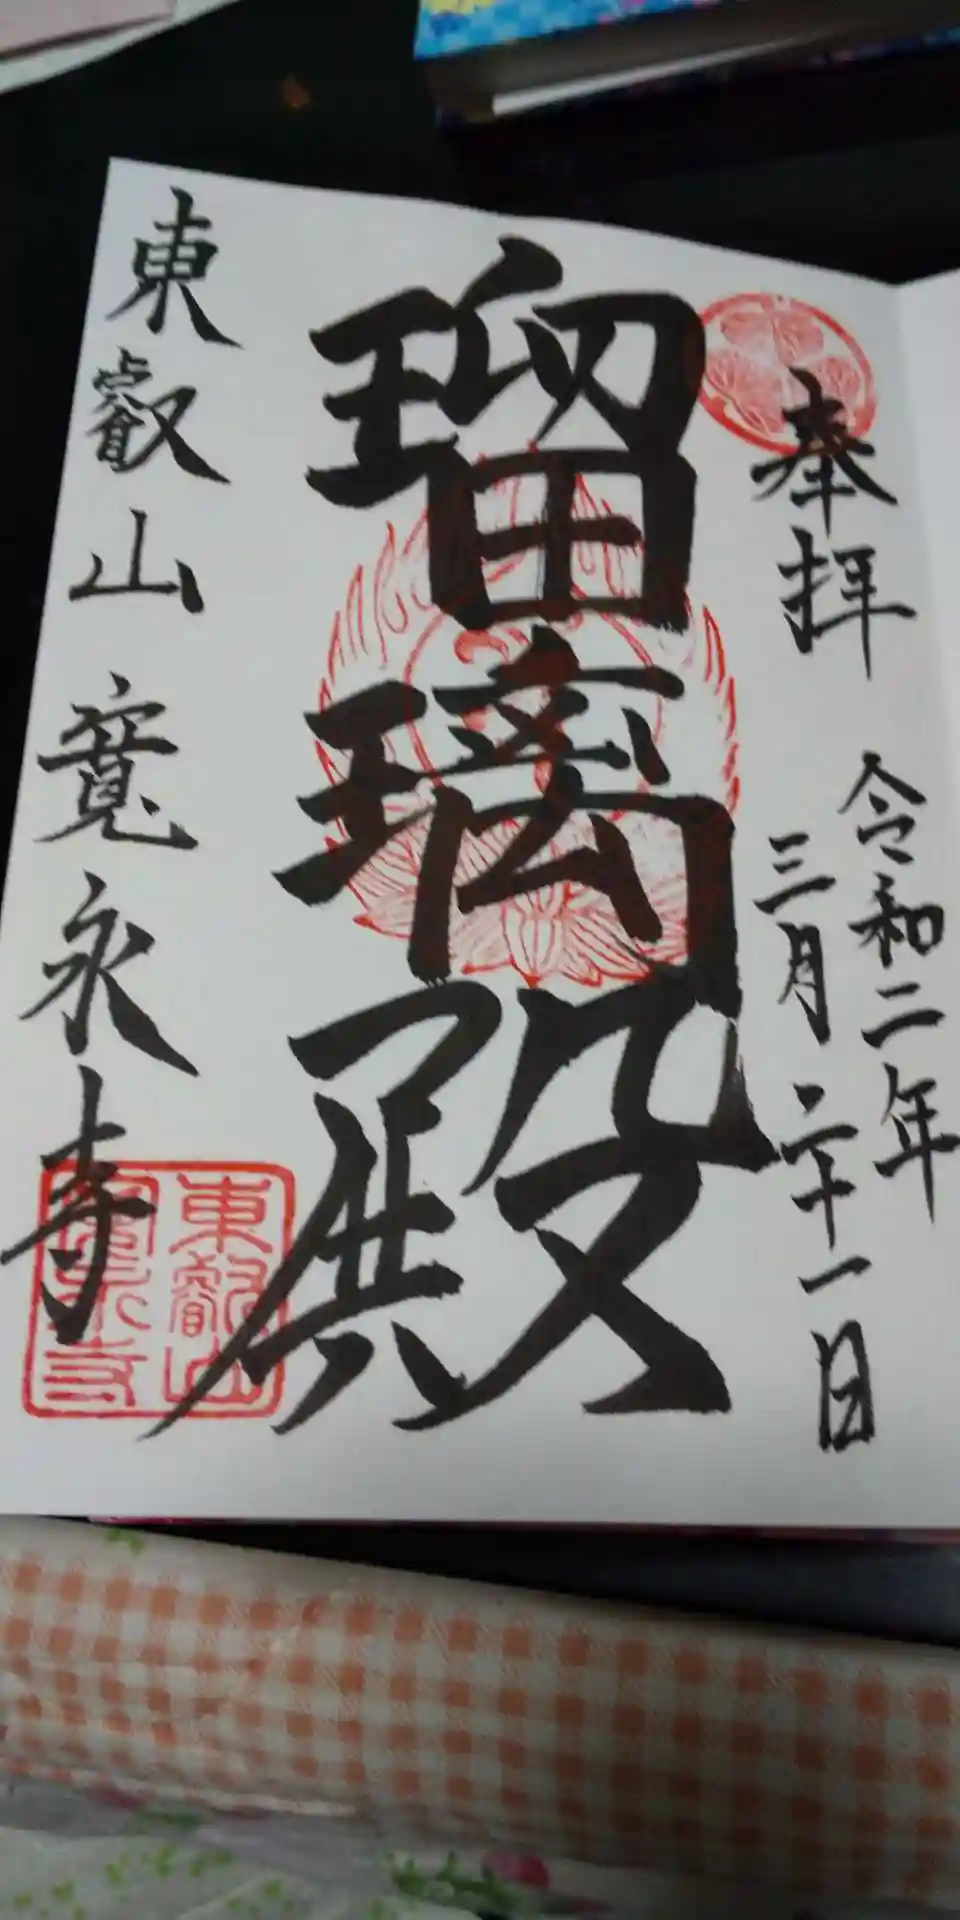 奉拝
令和二年
三月二十一日
瑠璃殿
東叡山 寛永寺
東叡山
寛永寺